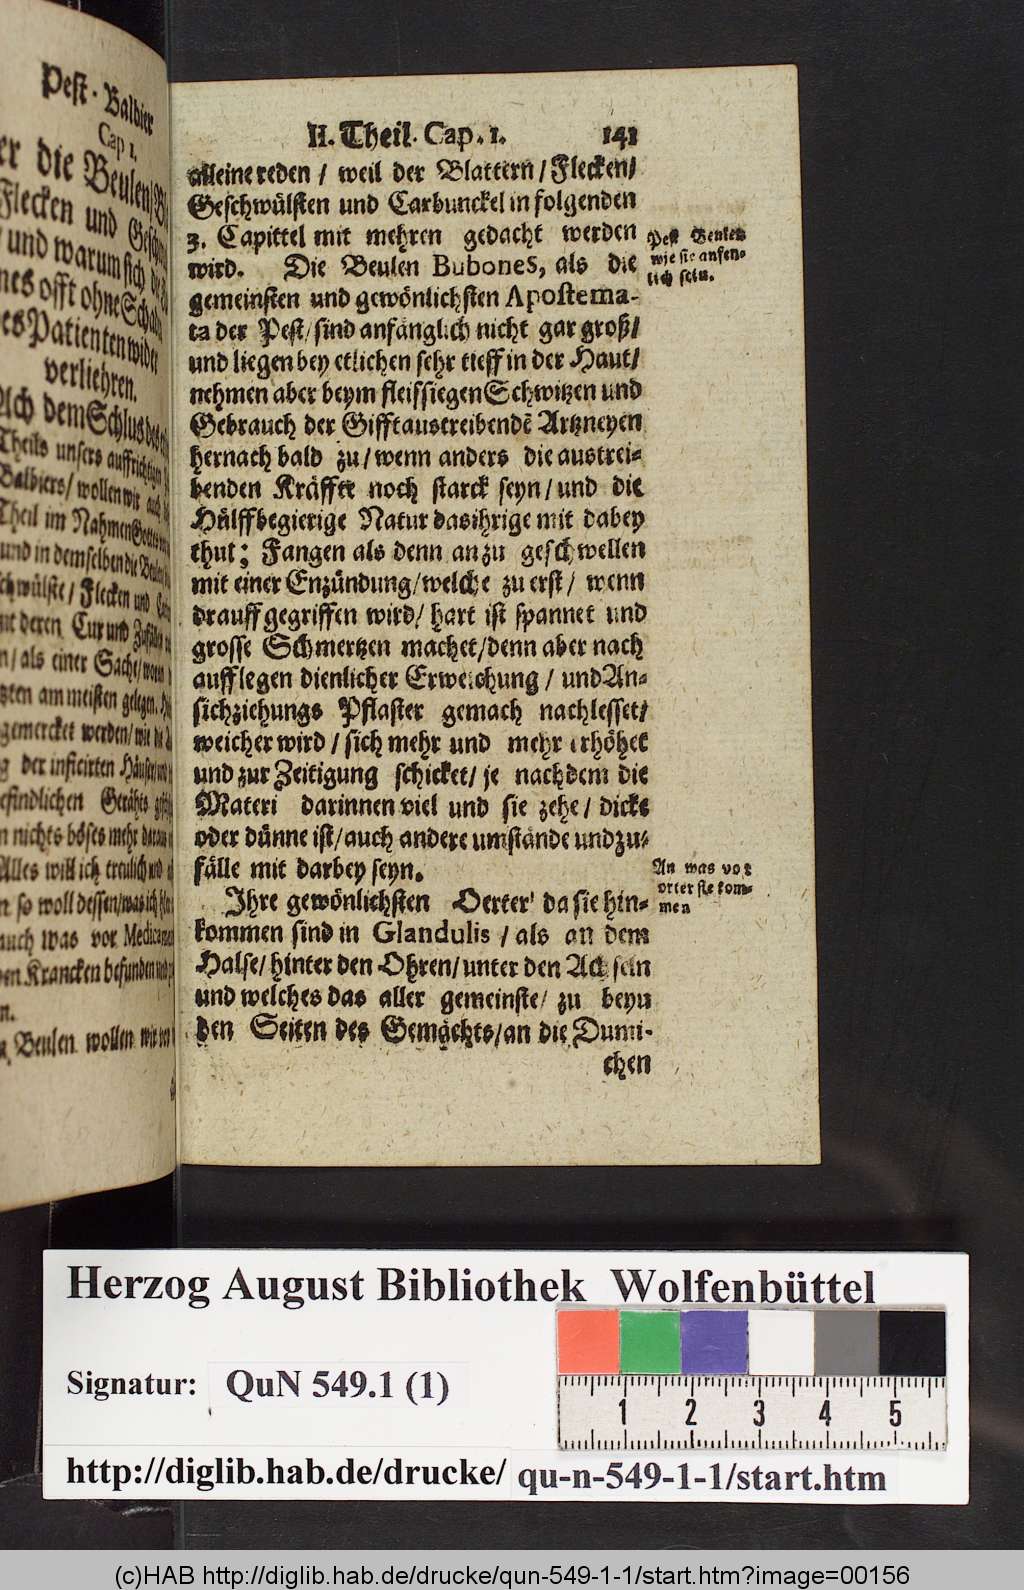 Pest-Balbier
Cap 1.
er die Beulen/
Flecken und
und warum sich die
nes offt ohne Schad
es Patienten wider
verliehren.
Ach dem Schlus des
Theils unsers auffrichtigen
Balbiers/ wollen wir auch
Theil im Nahmen Gottes
und in demselben die Beulen
schwülste/ Flecken und
mit deren Cur und Zufälle
n/ als einer Sache/ woran
zten am meisten gelegen.
gemercket werden/ wie die
g der inficirten Häuser
efindlichen Geräths
n nichts böses mehr daran
Alles will ich treulich und
n so woll dessen/ was ich
auch was vor Medica
en Krancken befunden
n.
Beulen wollen wir
II. Theil. Cap. 1. 141
alleine reden / weil der Blattern / Flecken/
Geschwülsten und Carbunckel in folgenden
3. Capittel mit mehren gedacht werden
wird. Die Beulen Bubones, als die
gemeinsten und gewönlichsten Apostema-
ta der Pest/ sind anfänglich nicht gar groß/
und liegen bey etlichen sehr tieff in der Haut/
nehmen aber beym fleissiegen Schwitzen und
Gebrauch der Gifftaustreibendē Artzneyen
hernach bald zu/ wenn anders die austrei-
benden Kräffte noch starck seyn/ und die
Hülffbegierige Natur das ihrige mit dabey
thut; Fangen als denn an zu geschwellen
mit einer Enzündung/ welche zu erst/ wenn
drauff gegriffen wird/ hart ist spannet und
grosse Schmertzen machet/ denn aber nach
aufflegen dienlicher Erweichung / und An-
sichziehungs Pflaster gemach nachlesset/
weicher wird / sich mehr und mehr erhöhet
und zur Zeitigung schicket/ je nachdem die
Materi darinnen viel und sie zehe/ dicke
oder dünne ist/ auch andere umstände und zu-
fälle mit darbey seyn.
Ihre gewönlichsten Oerter/ da sie hin-
kommen sind in Glandulis / als an dem
Halse/ hinter den Ohren/ unter den Achseln
und welches das aller gemeinste/ zu beyn
den Seiten des Gemächts/ an die Dumi-
chen
Pest Beulen
wie sie anfen-
lich sein.
An was vor
örter sie kom-
men
Herzog August Bibliothek Wolfenbüttel
Signatur: QuN 549.1 (1)
1 2 3 4 5
http://diglib.hab.de/drucke/ qu-n-549-1-1/start.htm
(c)HAB http://diglib.hab.de/drucke/qun-549-1-1/start.htm?image=00156